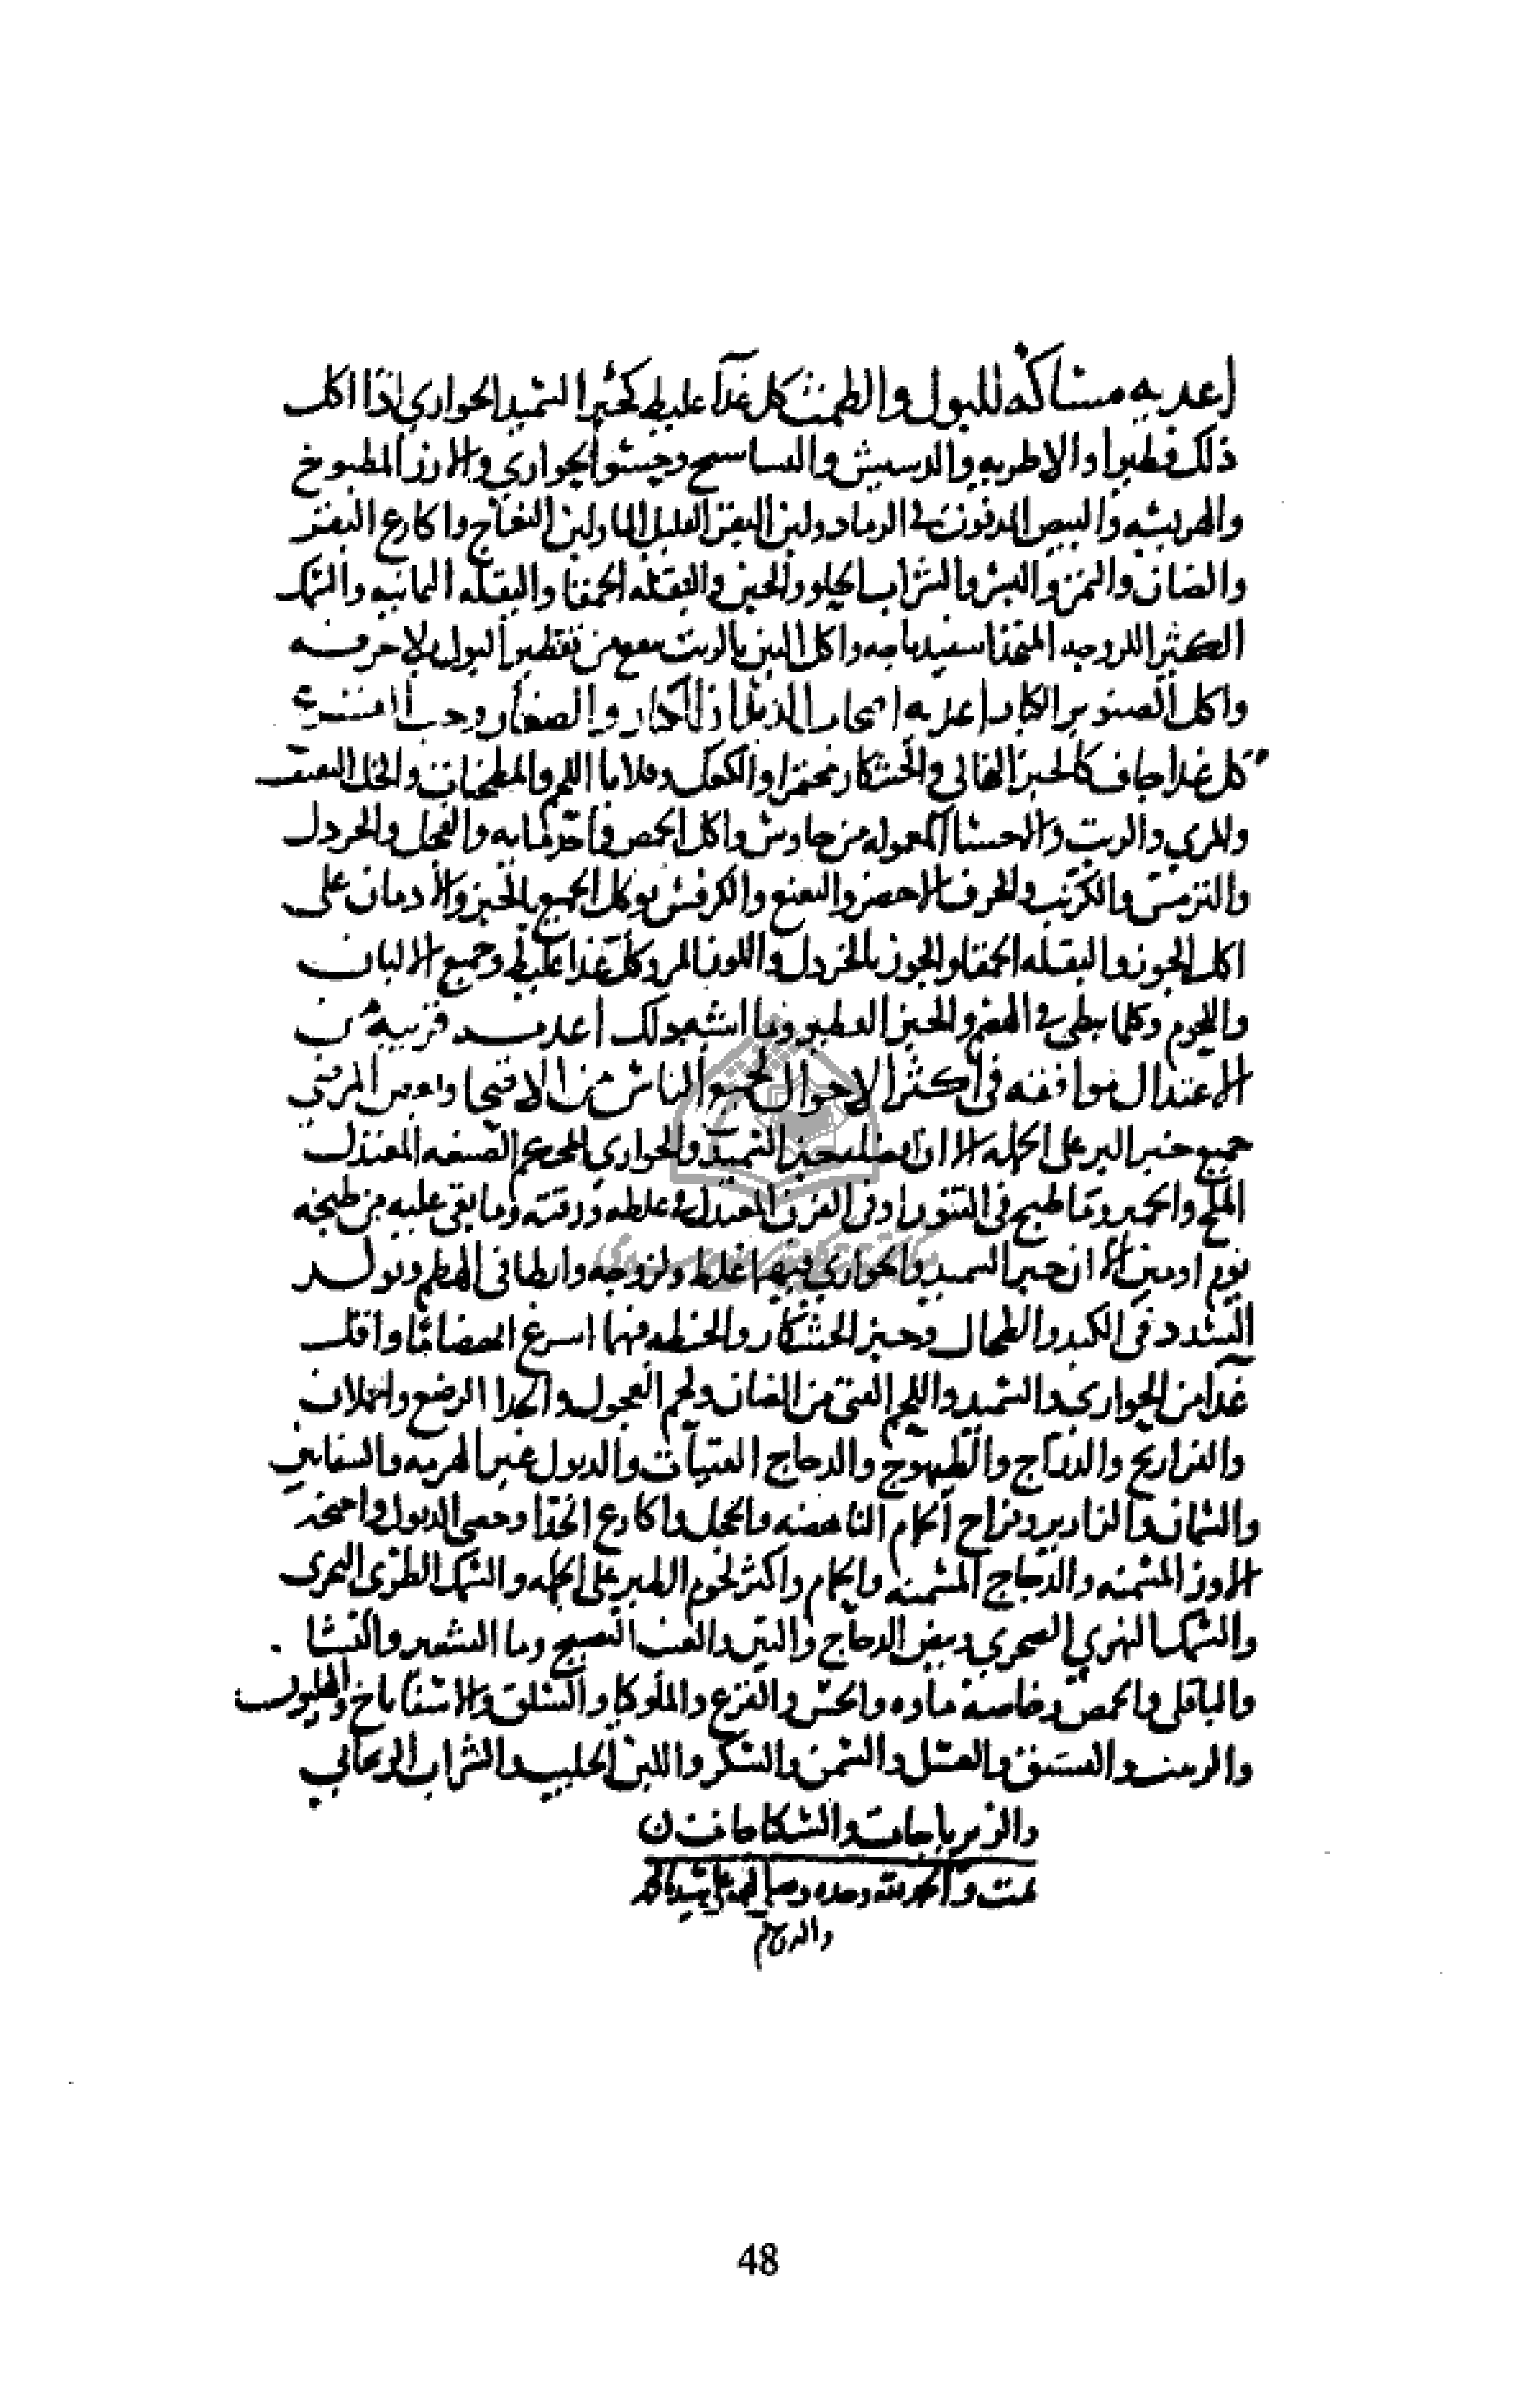 اغديه مساكة للبول والطمث كل غذآ غليظ كخبز السميد الحواري اذا اكل
ذلك فطيرا والاطريه والدشيش والساسح وحسو الحواري والارز المطبوخ
والهريسه والبيض المدفون في الرماد ولبن البقر القليل الما ولبن النعاج واكارع البقر
والضان والتمر والبسر والشراب الحلو والجبن والبقله الحمقا والبقله اليمانيه والسمك
الكثير اللزوجه المتخذ اسفيدباجه واكل التين بالزيت ينفع من تقطير البول بلا حرقه
واكل الصنوبر الكبار اغديه اصحاب الديدان الكبار والصغار وحب
كل غدا جاف كالخبز النقالي والخشكار مختمرا والكعك وقلايا اللحم والمطجنات والخل الثقيف
والمري والزيت والاحسا المعموله من جاورس واكل الحمص وما به والفجل والخردل
والترمس والكرنب والحرف الاخضر والنعنع والكرفس يوكل الجميع بالخبز والادمان على
اكل الجوز والبقله الحمقا والجوز بالخردل واللوز المر وكل غذا غليظ وجميع الالبان
واللحوم وكلما يبطي في الهضم والخبز الفطير وما اشبه ذلك اغديه قريبه من
الاعتدال موافقه في اكثر الاحوال لجميع الناس من الاصحا وبعض المرضى
جميع خبز البر على الجمله الا ان افضله خبز السميد والحواري المحكم الصنعه المعتدل
الملح والخمير وما طبخ في التنور او في الفرن المعتدل في غلظه ورقته وما بقي عليه من طبخه
يوم او يومين الا ان خبز السميد والحواري فيهما غلظ ولزوجه وابطا في الهضم وتولد
السدد في الكبد والطحال وخبز الخشكار والحنطه فهما اسرع انهضاما واقل
غدا من الحواري والسميد واللحم الفتي من الضان ولحم العجول والجدا الرضع والحملان
والفراريج والدراج والطيهوج والدجاج الفتيات والديوك غير الهرمه والشفانين
والسمان والزرازير وفراخ الحمام الناهضه والحجل واكارع الجدا وخصي الديوك واجنحه
الاوز المسمنه والدجاج المسمنه والحمام واكثر لحوم الطير على الجمله والسمك الطري البحري
والسمك النهري الصخري وبيض الدجاج والتين والعنب النضيج وما الشعير والنشا
والباقلى والحمص وخاصة ماوه والخس والقرع والملوكيا والسلق والاسفاناخ والهليون
والزبيب والفستق والعسل والسمن والسكر واللبن الحليب والشراب الريحاني
والزيرباجات والسكباجات
تمت والحمد لله وحده وصلى الله على سيدنا محمد
واله
48